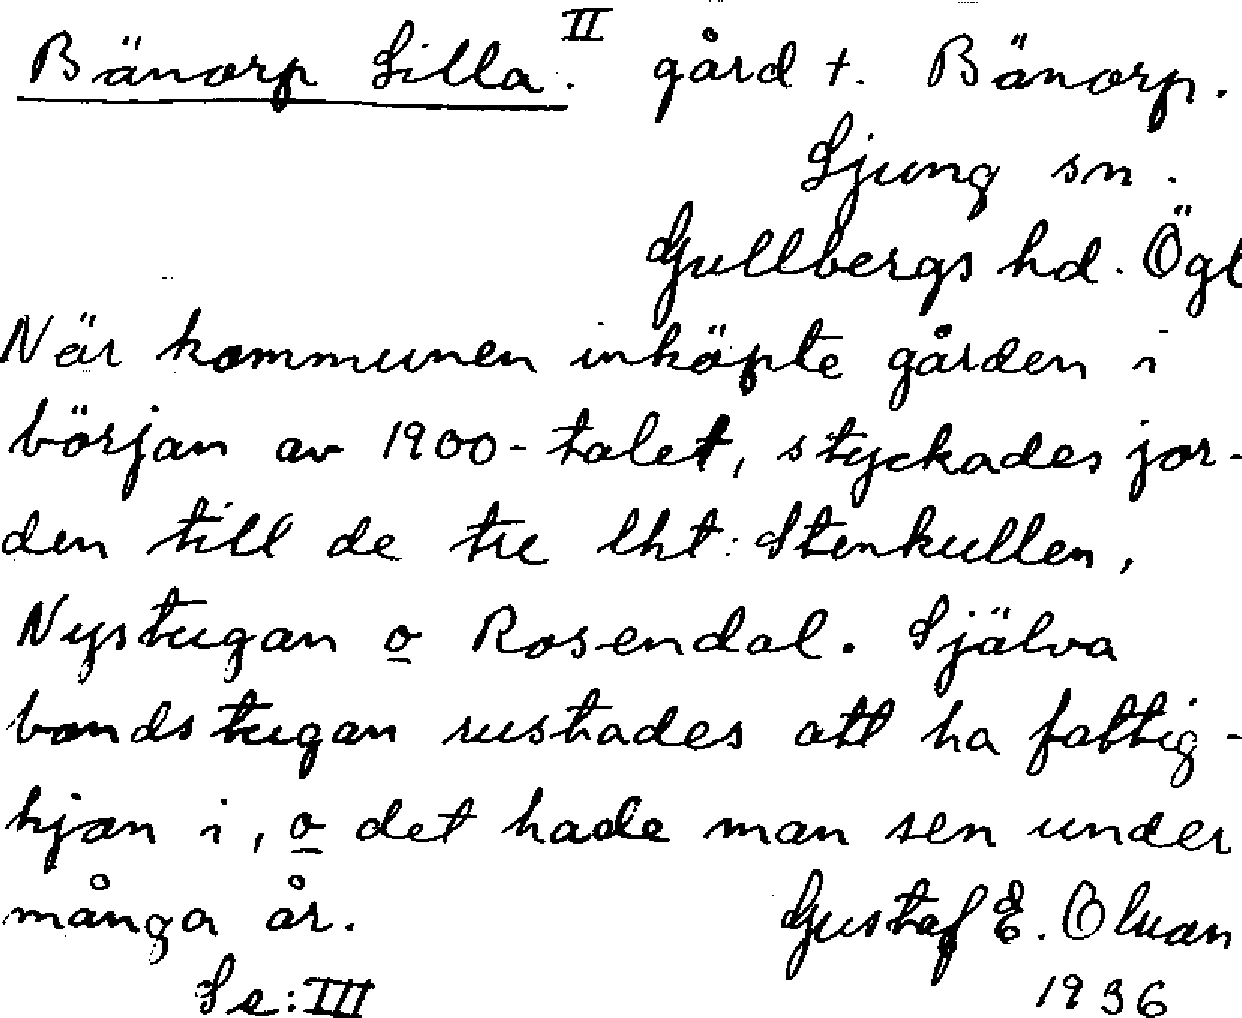 Bänorp Lilla. II gård t. Bänorp.
Ljung sn.
Gullbergs hd. Ögl
När kommunen inköpte gården i
början av 1900-talet, styckades jor-
den till de tre lht: Stenkullen,
Nystugan o Rosendal. Själva
bondstugan rustades att ha fattig-
hjon i, o det hade man sen under
många år.
Gustaf E.
Se: III
1936